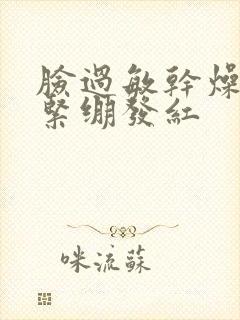 臉過敏幹燥
緊繃發紅
咪流蘇